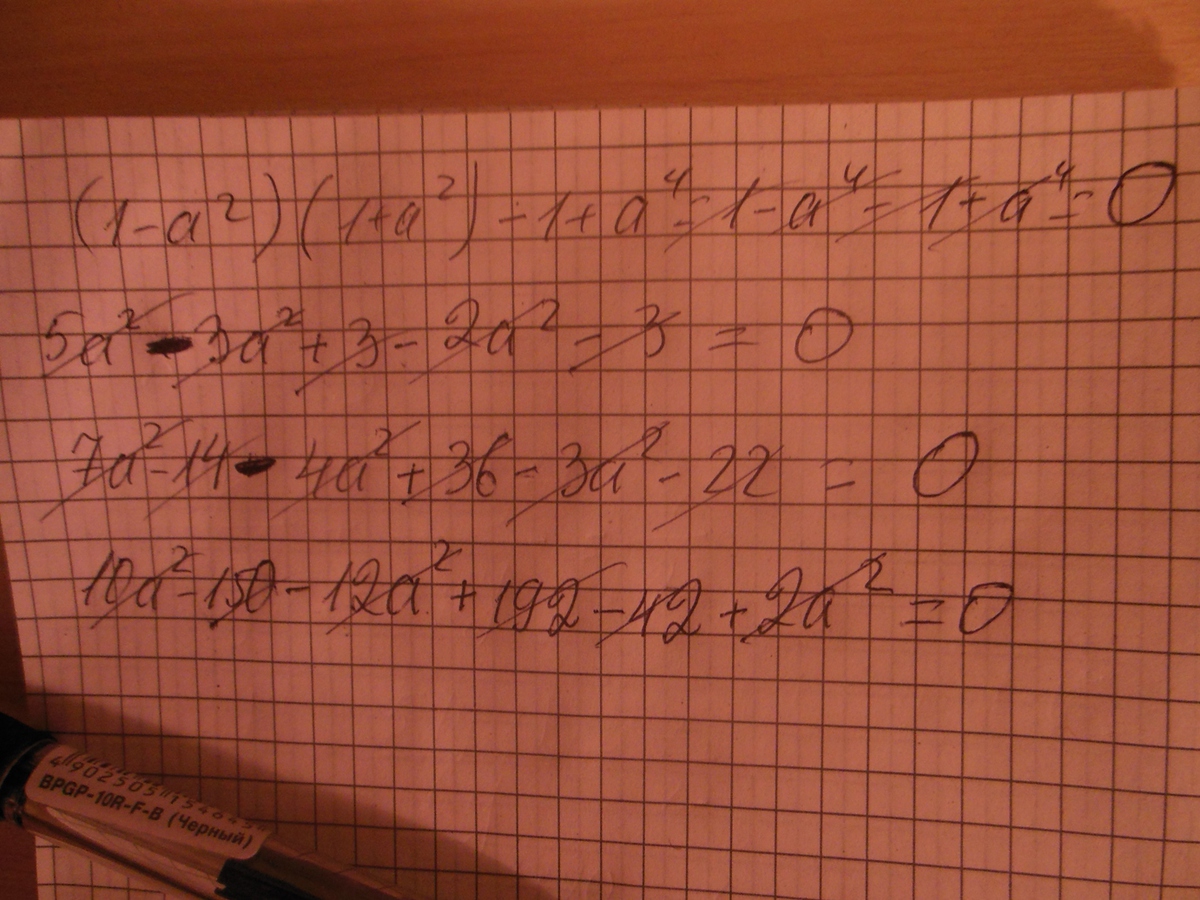 (1-a²)(1+a²)-1+a⁴=1-a⁴-1+a⁴=0
5a²-3a²+3-2a²-3=0
7a²-14-4a²+36-3a²-22=0
10a²-150-12a²+192-42+2a²=0
4"902505"154645"
BPGP-10R-F-B (Черный)